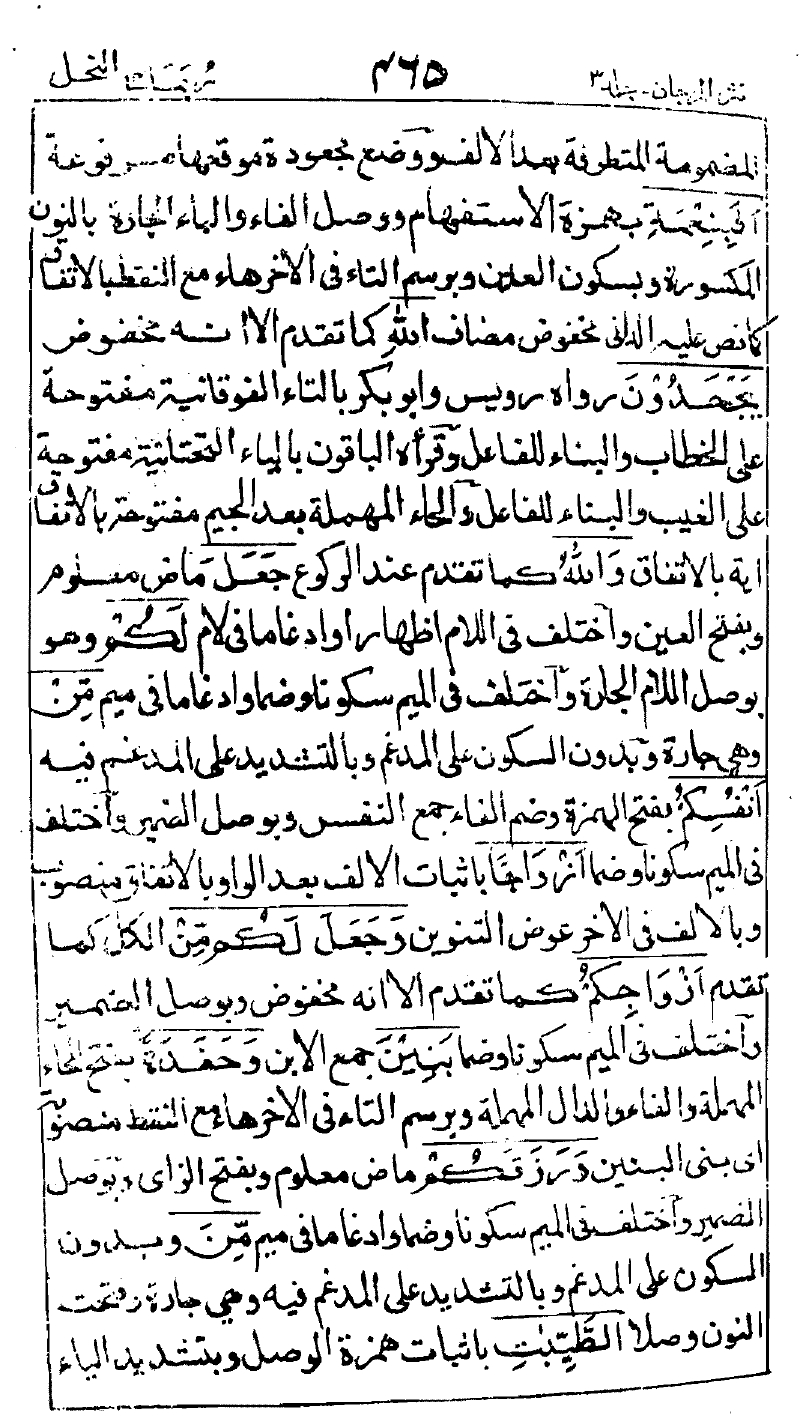 نثر المرجان - جلد ٣ ٤٦٥ ربما النحل
المضمومة المتطرفة بعد الالف ووضع مجعودة موقعها مرفوعة
اَفَبِنِعْمَةِ بهمزة الاستفهام ووصل الفاء والباء الجارة بالنون
المكسورة وبسكون العين وبرسم التاء فى الاخر هاء مع النقط بالاتفاق
كما نص عليه الدانى مخفوض مضاف اللّٰهِ كما تقدم الا انه مخفوض
يَجْحَدُوْنَ رواه رويس وابو بكر بالتاء الفوقانية مفتوحة
على الخطاب والبناء للفاعل وقرأه الباقون بالياء التحتانية مفتوحة
على الغيب والبناء للفاعل والحاء المهملة بعد الجيم مفتوحة بالاتفاق
اية بالاتفاق وَاللّٰهُ كما تقدم عند الركوع جَعَلَ ماض معلوم
وبفتح العين واختلف فى اللام اظهارا وادغاما فى لام لَكُمْ وهو
بوصل اللام الجارة واختلف فى الميم سكونا وضما وادغاما فى ميم مِّنْ
وهى جارة وبدون السكون على المدغم وبالتشديد على المدغم فيه
اَنْفُسِكُمْ بفتح الهمزة وضم الفاء جمع النفس وبوصل الضمير واختلف
فى الميم سكونا وضما اَزْوَاجًا باثبات الالف بعد الواو بالاتفاق منصوب
وبالالف فى الاخر عوض التنوين وَجَعَلَ لَكُمْ مِّنْ الكل كما
تقدم اَزْوَاجِكُمْ كما تقدم الا انه مخفوض وبوصل الضمير
واختلف فى الميم سكونا وضما بَنِيْنَ جمع الابن وَحَفَدَةً بفتح الحاء
المهملة والفاء والدال المهملة وبرسم التاء فى الاخر هاء مع النقط منصوبة
اى بنى البنين وَرَزَقَكُمْ ماض معلوم وبفتح الزاى وبوصل
الضمير واختلف فى الميم سكونا وضما وادغاما فى ميم مِّنَ وبدون
السكون على المدغم وبالتشديد على المدغم فيه وهى جارة وفتحت
النون وصلا الطَّيِّبٰتِ باثبات همزة الوصل وبتشديد الياء